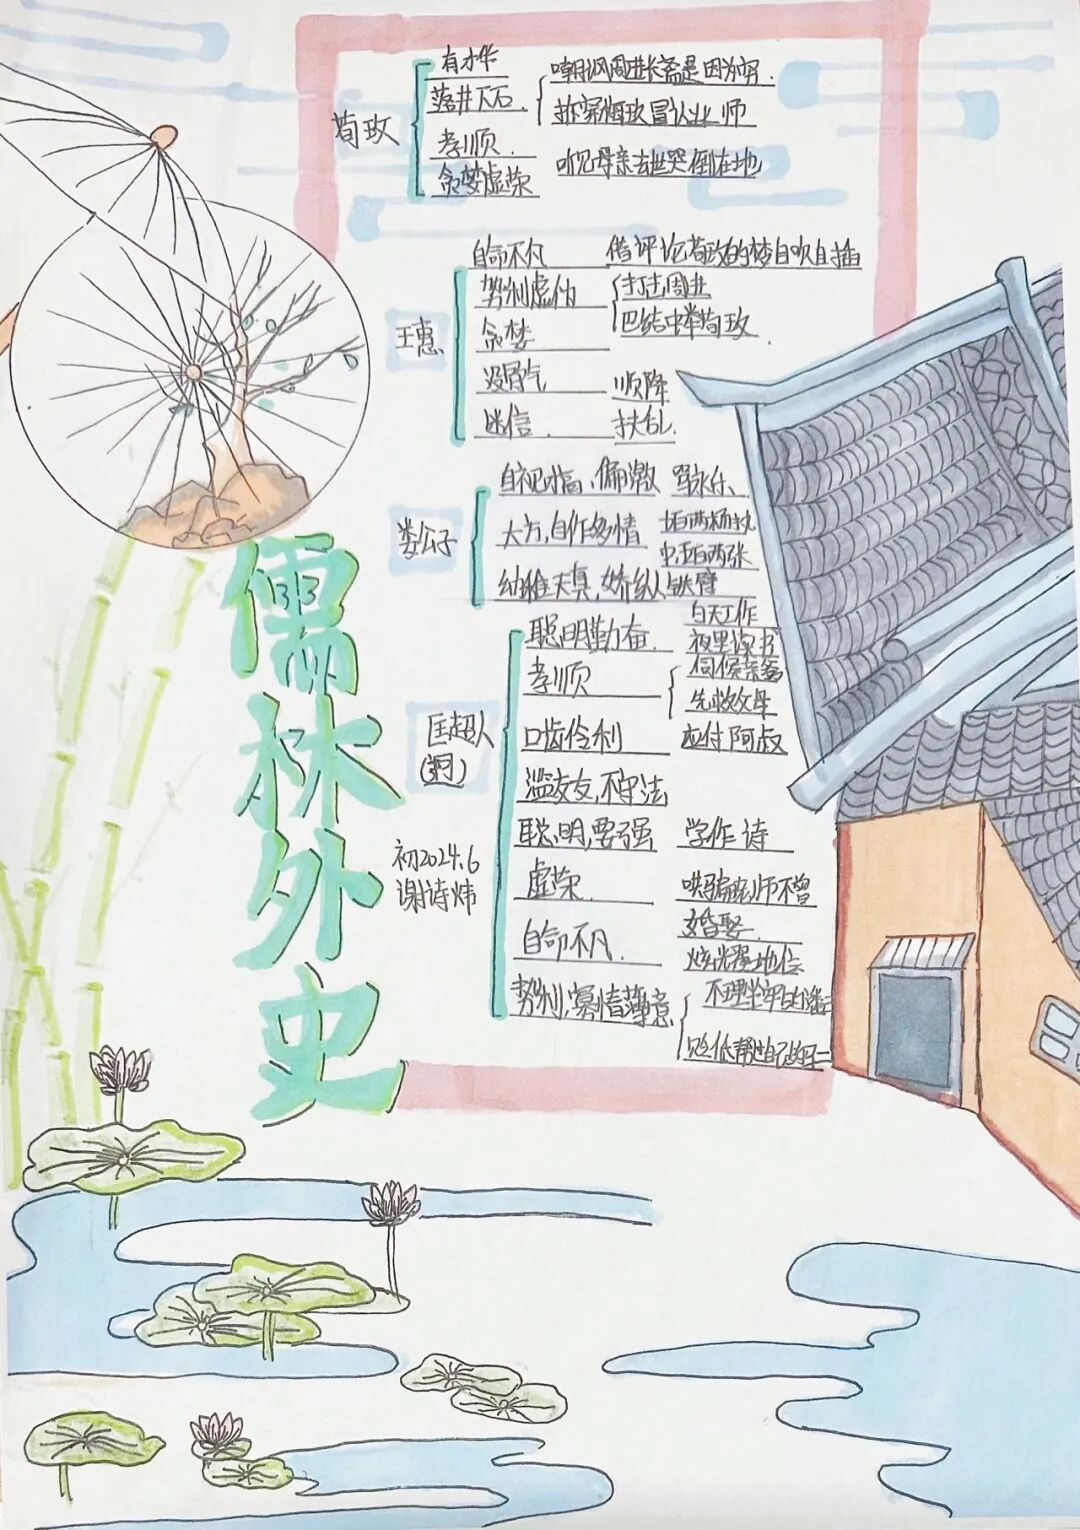 儒林外史
荀玫
有才华
落井下石
嘲讽周进长斋是因为穷
拆穿梅玖冒认业师
孝顺
听见母亲去世哭倒在地
贪婪虚荣
王惠
自命不凡 借评论荀玫的梦自吹自插
势利虚伪
打击周进
巴结中举荀玫
贪婪
没骨气 顺降
迷信 扶乩
娄公子
自视才高、偏激
大方,自作多情
幼稚天真,娇纵
铁臂
匡超人
聪明勤奋
白天工作
夜里读书
孝顺
伺候亲爹
先救父母
口齿伶利 应付阿叔
滥交友,不守法
聪明,要强 学作诗
虚荣
哄骗老师不曾
婚娶
自命不凡
炫耀地位
势利,寡情薄意
初2024.6
谢诗炜